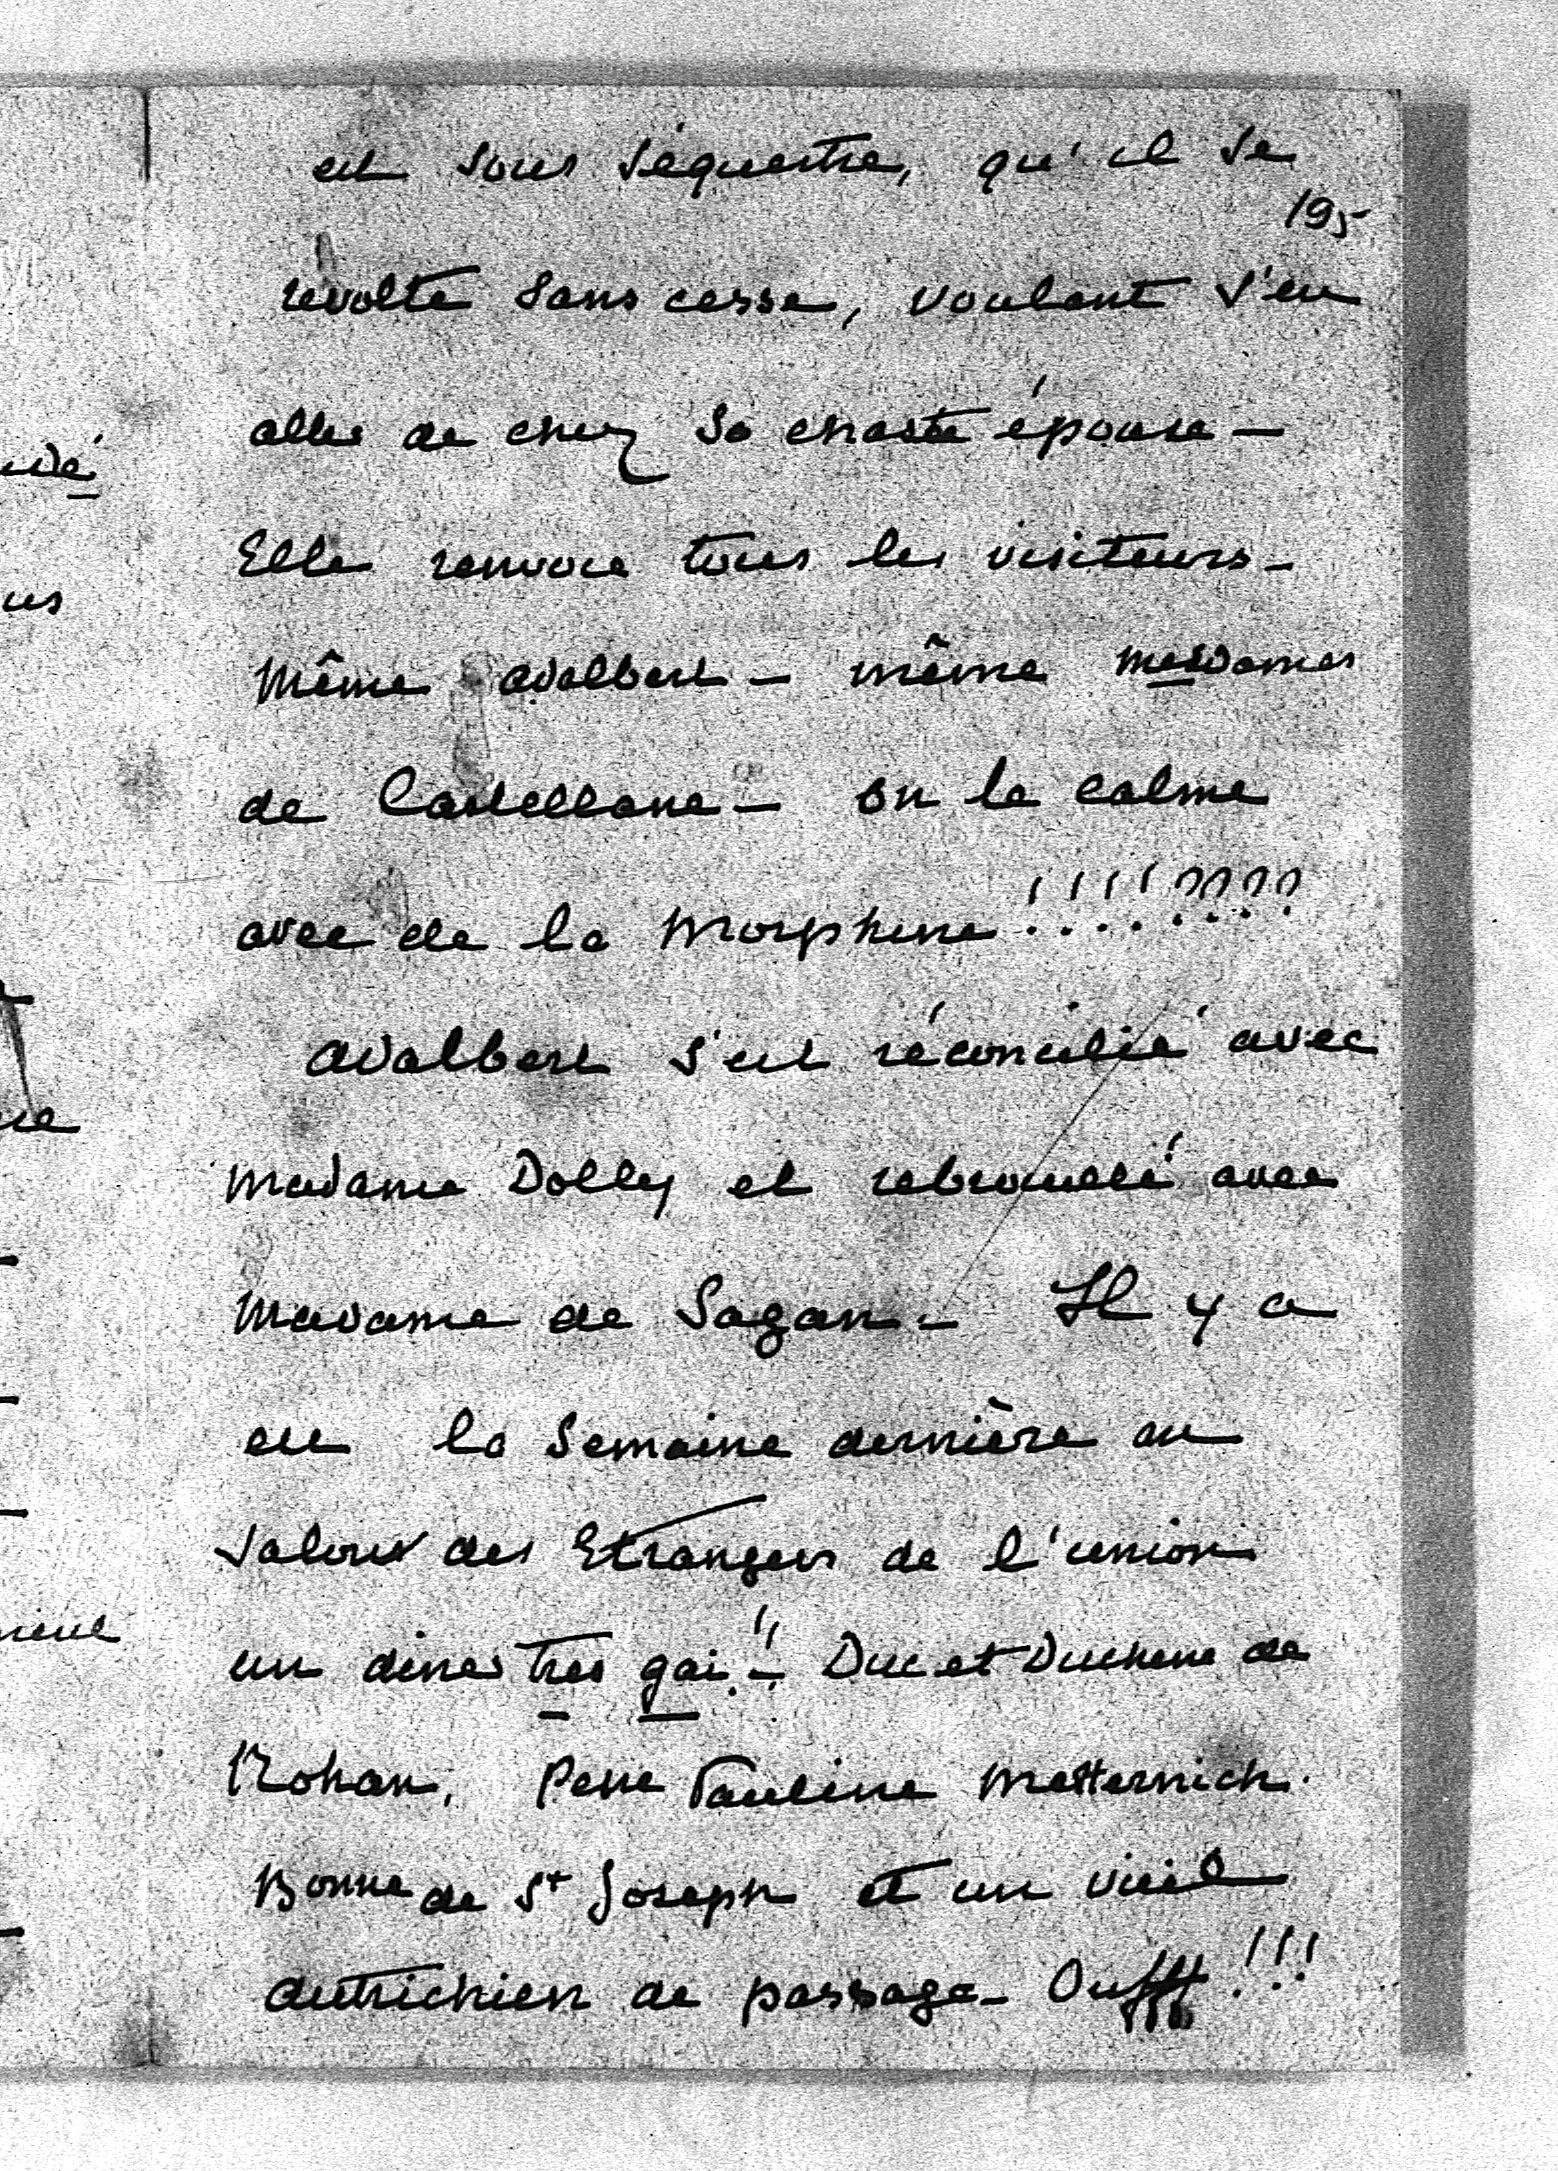 est sous séquestre, qu'il se
195
revolte sans cesse, voulant s'en
aller de chez sa chaste épouse —
Elle renvoie tous les visiteurs —
même Adalbert — même mesdames
de Castellane — on le calme
avec de la morphine !!!!????
Adalbert s'est réconcilié avec
madame Dolly et rebrouillé avec
madame de Sagan — Il y a
eu la semaine dernière au
salon des Etrangers de l'union
un diner tres gai !! — Duc et Duchesse de
Rohan, Pcsse Pauline Metternich.
Bonne de St Joseph et un vieil
autrichien de passage — Oufff !!!